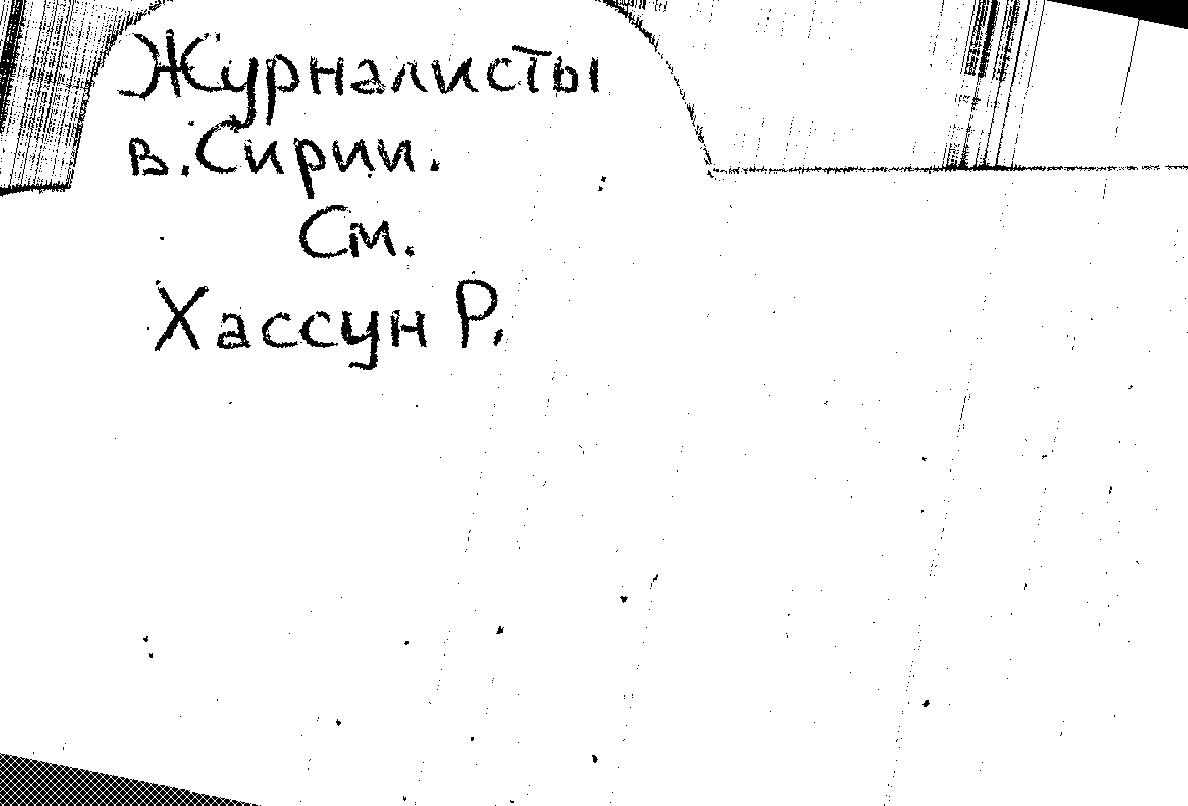 Журналисты
в. Сирии.
См.
Хассун Р.